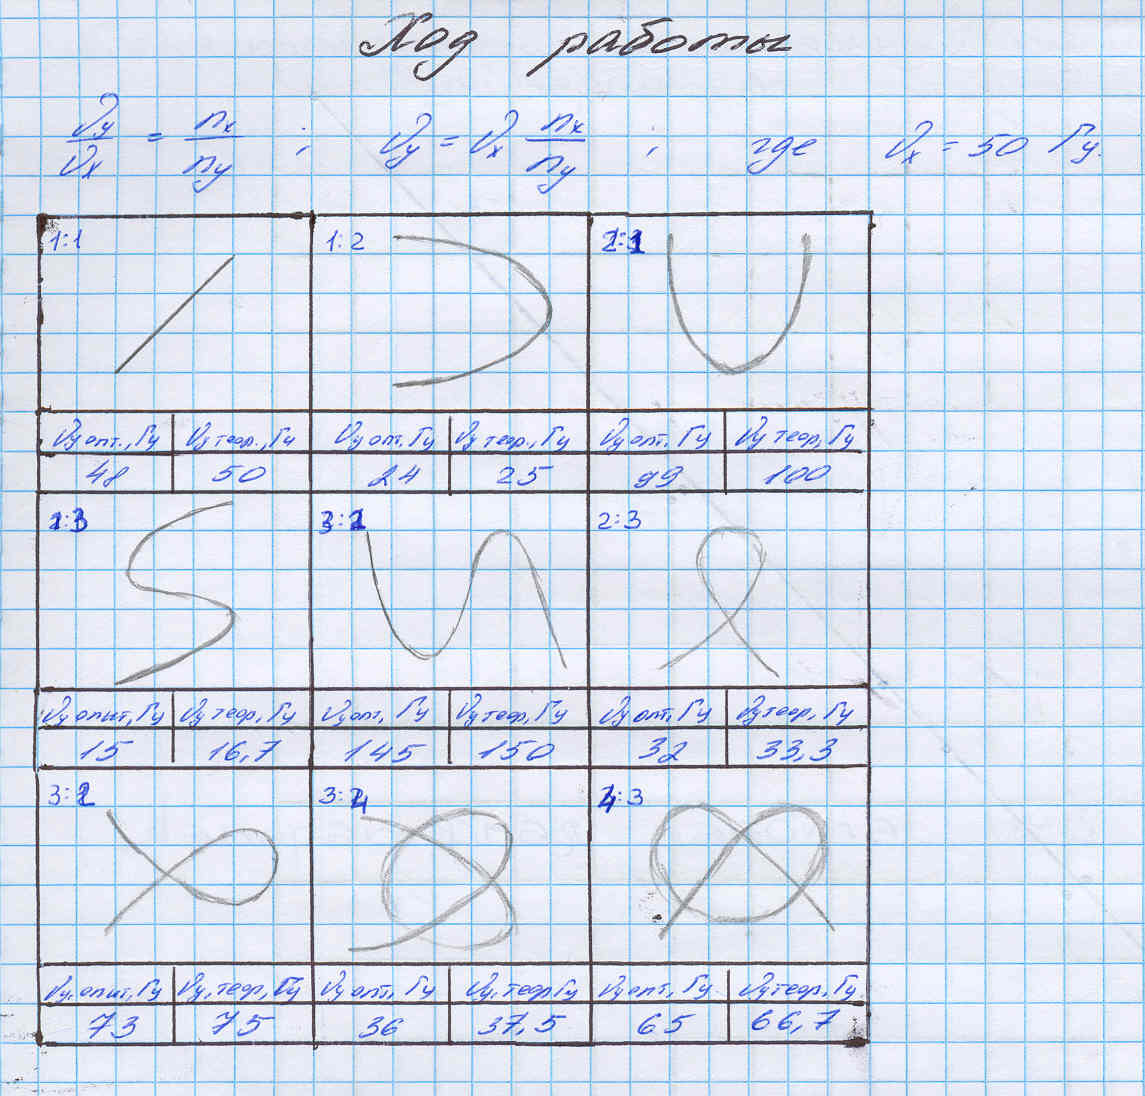 Ход работы
νy/νx = nx/ny ; νy = νx nx/ny , где νx = 50 Гц.
1:1 1:2 2:1
νy опт., Гц νy теор., Гц νy опт, Гц νy теор., Гц νy опт. Гц νy теор, Гц
48 50 24 25 99 100
1:3 3:1 2:3
νy опыт, Гц νy теор, Гц νy опт, Гц νy теор, Гц νy опт, Гц νy теор, Гц
15 16,7 145 150 32 33,3
3:2 3:4 4:3
νy, опыт, Гц νy, теор, Гц νy опт, Гц νy, теор Гц νy опт, Гц νy теор, Гц
73 75 36 37,5 65 66,7